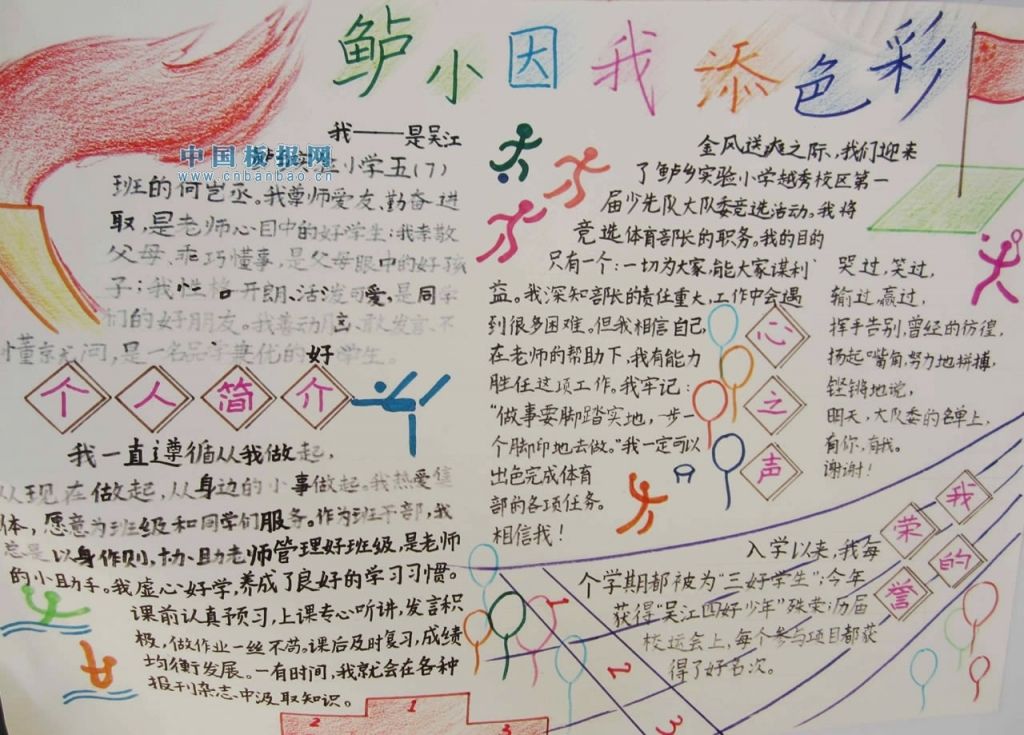 鲈小因我添色彩
中国板报网
www.cnbanbao.cn
我——是吴江
小学五(7)
班的何岂丞。我尊师爱友、勤奋进
取,是老师心目中的好学生;我孝敬
父母、乖巧懂事,是父母眼中的好孩
子;我性格开朗、活泼可爱,是同学
们的好朋友。我善动脑、敢发言、不
懂就问,是一名品学兼优的好学生。
个人简介
我一直遵循从我做起,
从现在做起,从身边的小事做起。我热爱集
体,愿意为班级和同学们服务。作为班干部,我
总是以身作则,协助老师管理好班级,是老师
的小助手。我虚心好学,养成了良好的学习习惯。
课前认真预习,上课专心听讲,发言积
极,做作业一丝不苟。课后及时复习,成绩
均衡发展。一有时间,我就会在各种
报刊杂志中汲取知识。
金风送爽之际,我们迎来
了鲈乡实验小学越秀校区第一
届少先队大队委竞选活动。我将
竞选体育部长的职务。我的目的
只有一个:一切为大家,能大家谋利
益。我深知部长的责任重大,工作中会遇
到很多困难。但我相信自己
在老师的帮助下,我有能力
胜任这项工作。我牢记:
“做事要脚踏实地,一步一
个脚印地去做。”我一定可以
出色完成体育
部的各项任务。
相信我!
心之声
哭过,笑过,
输过,赢过,
挥手告别,曾经的彷徨,
扬起嘴角,努力地拼搏,
铿锵地说,
明天,大队委的名单上,
有你,有我。
谢谢!
我的荣誉
入学以来,我每
个学期都被为“三好学生”;今年
获得“吴江四好少年”殊荣;历届
校运会上,每个参与项目都获
得了好名次。
1
2
3
2
1
3